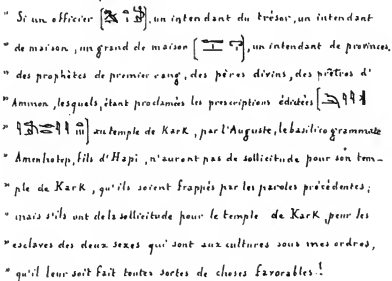 " Si un officier [ ], un intendant du trésor, un intendant
" de maison, un grand de maison [ ], un intendant de provinces,
" des prophètes de premier rang, des pères divins, des prêtres d'
" Ammon, lesquels, étant proclamées les prescriptions édictées [
" ] au temple de Kark, par l'Auguste, le basilicogrammate
" Amenhotep, fils d'Hapi, n'auront pas de sollicitude pour son tem-
" ple de Kark, qu'ils soient frappés par les paroles précédentes;
" mais s'ils ont de la sollicitude pour le temple de Kark, pour les
" esclaves des deux sexes qui sont aux cultures sous mes ordres,
" qu'il leur soit fait toutes sortes de choses favorables!